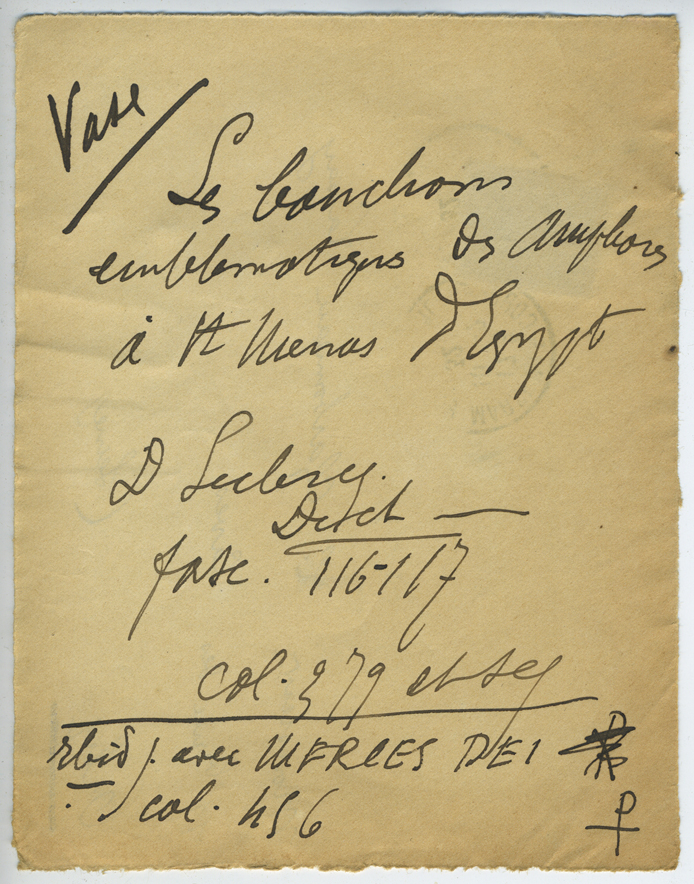 Vase
Les bouchons
emblematiques des Amphores
à St Menas d'Egypt
D Leclercq.
Dict —
fasc. 116-117
col. 379 et seq
Ibid j. avec MERCES DEI
col. 456